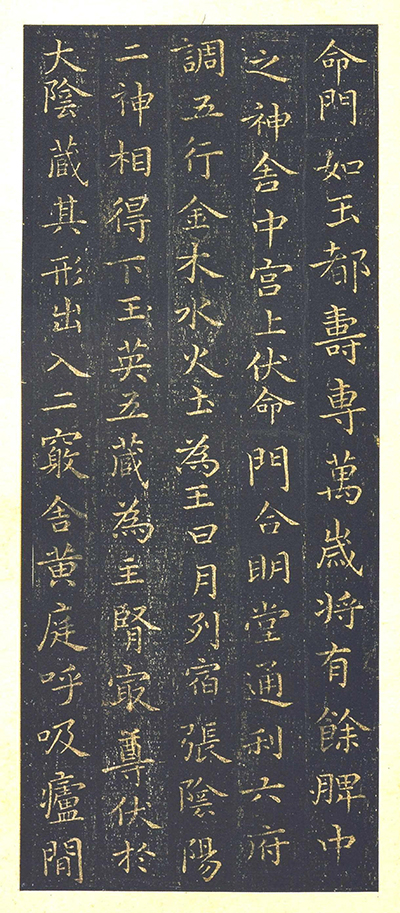 命門如王都壽専萬歲将有餘脾中
之神舍中宫上伏命門合明堂通利六府
調五行金木水火土為王日月列宿張陰陽
二神相得下玉英五藏為主腎㝡尊伏於
大陰藏其形出入二竅舍黄庭呼吸廬間